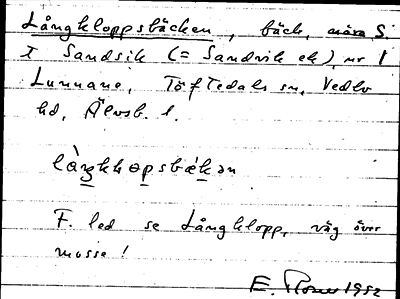 Långkloppsbäcken, bäck, mossa, S.
I Sandsik (= Sandvik ek), nr 1
Lunnane, Töftedals sn, Vedbo
hd, Älvsb. l.
F. led se Långklopp, väg över
mosse!
E. 1952